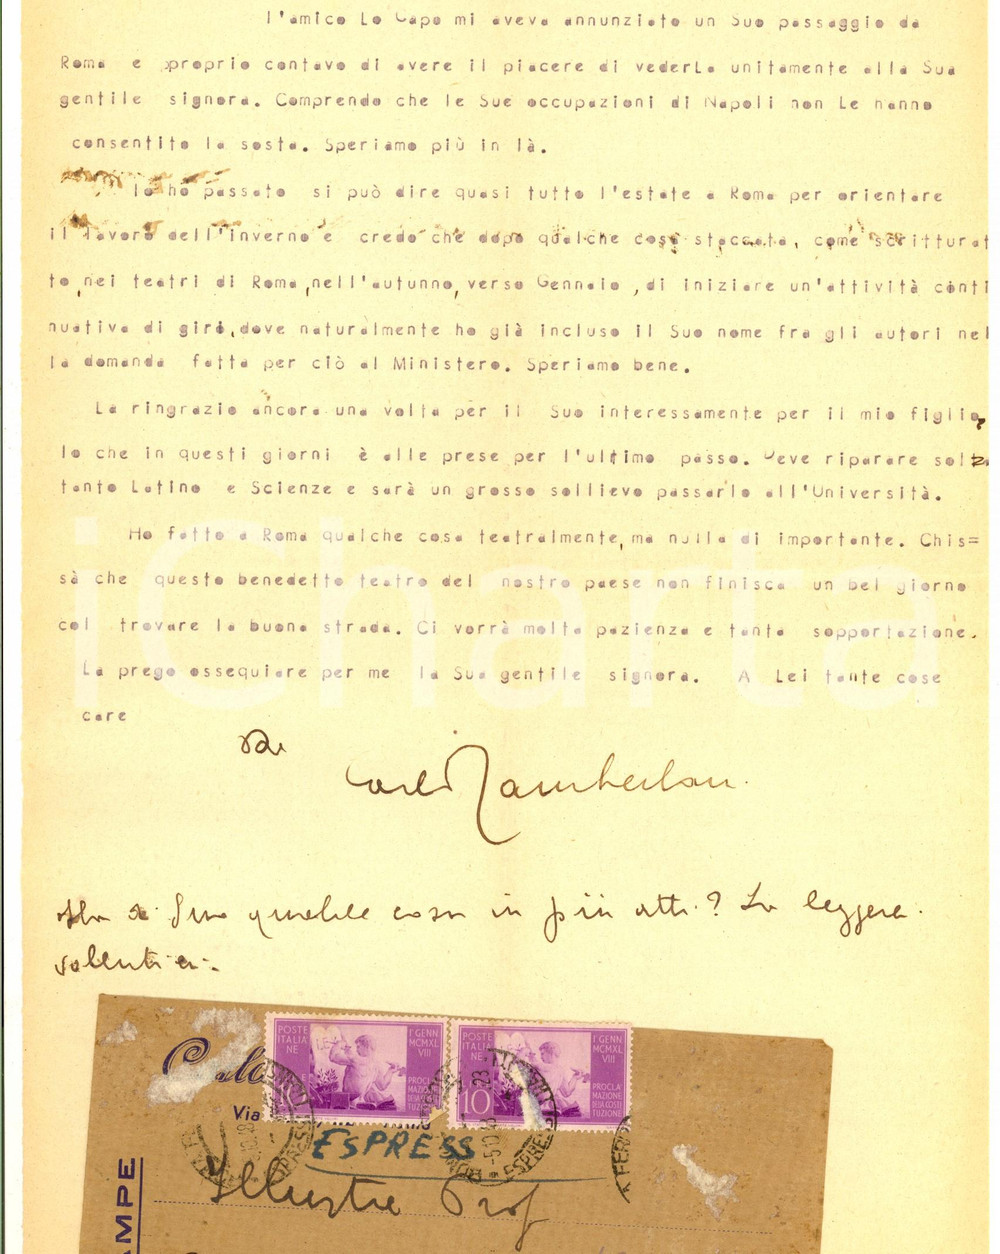 l'amico Lo Capo mi aveva annunziato un Suo passaggio da
Roma e proprio contavo di avere il piacere di vederLa unitamente alla Sua
gentile signora. Comprendo che le Sue occupazioni di Napoli non Le hanno
consentito la sosta. Speriamo più in là.
Io ho passato si può dire quasi tutto l'estate a Roma per orientare
il lavoro dell'inverno e credo che dopo qualche cosa staccata, come scritturat
to,nei teatri di Roma,nell'autunno,verso Gennaio ,di iniziare un'attività conti
nuativa di giro,dove naturalmente ho già incluso il Suo nome fra gli autori nel
la domanda fatta per ciò al Ministero. Speriamo bene.
La ringrazio ancora una volta per il Suo interessamente per il mio figlio,
lo che in questi giorni è alle prese per l'ultimo passo. Deve riparare solz
tanto Latino e Scienze e sarà un grosso sollievo passarlo all'Università.
Ho fatto a Roma qualche cosa teatralmente,ma nulla di importante. Chis=
sà che questo benedetto teatro del nostro paese non finisca un bel giorno
col trovare la buona strada. Ci vorrà molta pazienza e tanta sopportazione.
La prego ossequiare per me la Sua gentile signora. A Lei tante cose
care
Carlo Tamberlani
Ha di Suo qualche cosa in più atti? La leggerei
volentieri.
iCharta
POSTE ITALIANE
I GENN MCMXLVIII
PROCLAMAZIONE DELLA COSTITUZIONE
POSTE ITALIANE
10
I GENN MCMXLVIII
PROCLAMAZIONE DELLA COSTITUZIONE
Via
ESPRESS
Illustre Prof
AMPE